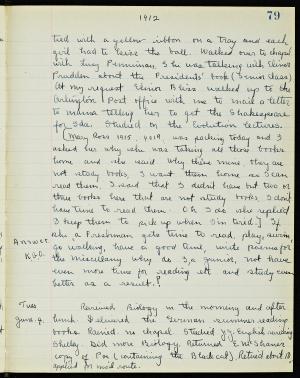 1912
79
tied with a yellow ribbon on a tray and each
girl had to seize the ball. Walked over to chapel
with Lucy Penniman. She was talking with Elinor
Prudden about the Presidents' book (Senior class)
At my request Elinor Bliss walked up to the
Arlington Post office with me to mail a letter
to mama telling her to get the Shakespeare
for Ida. Studied on the Evolution lectures.
[Mary Ross 1915, was packing today and I
asked her why she was taking all those books
home and she said why they're mine, they are
not study books, I want them home so I can
read them. I said that I didn't have but two or
three books here that are not study books. I don't
have time to read them. Oh I do she replied
I keep them to pick up when I'm tired.] If
she a Freshman, gets time to read, play, swim
go walking, have a good time, write poems for
the miscellany why do I, a junior, not have
even more time for reading etc and study even
better as a result?
Answer
K.G.O.
Tues
June 4.
Reviewed Biology in the morning and after
lunch. Delivered the German summer reading
books. Rained. no chapel. Studied English reading
Shelley. Did more Biology. Returned E. McShane's
copy of Poe (containing the Black Cat). Retired about 10
applied for mail route.